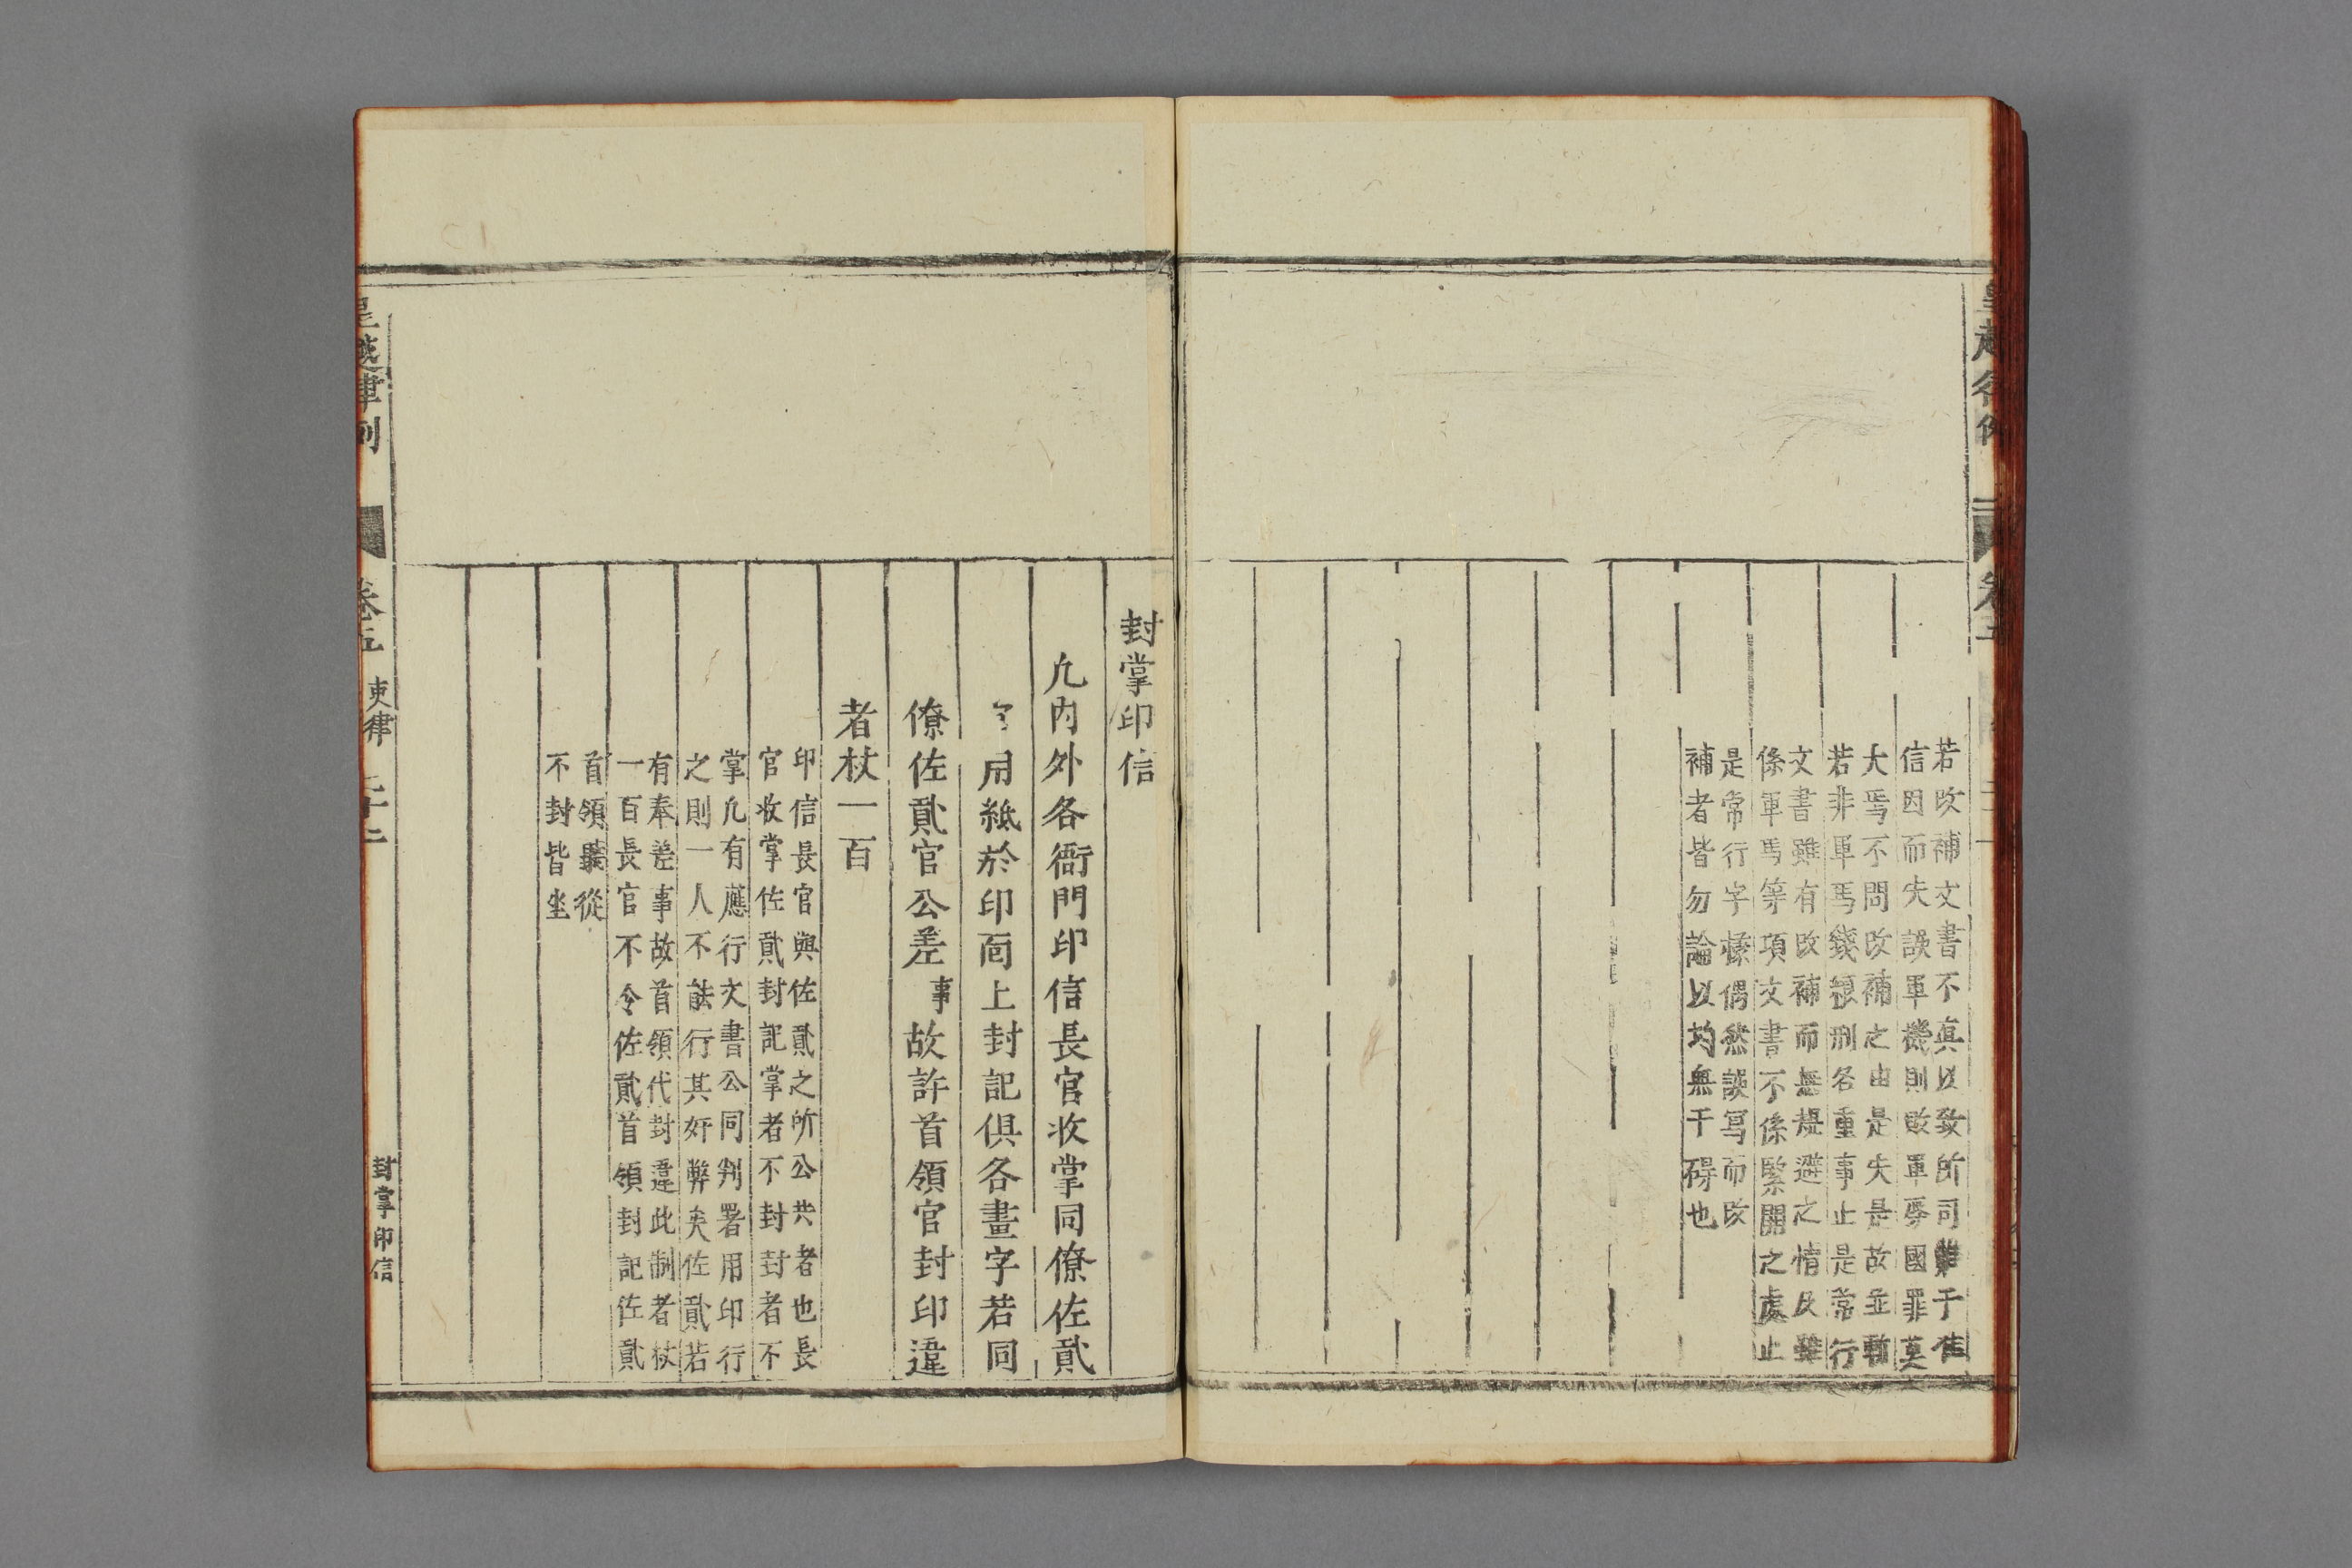 若改補文書不真以致所司難于信
信因而失誤軍機則敗軍辱國罪莫
大焉不問改補之由是失是故並斬
若非軍馬錢糧刑名重事止是常行
文書雖有改補而無規避之情及雖
係軍馬等項文書不係緊關之處止
是常行字樣偶然誤寫而改
補者皆勿論以均無干碍也
封掌印信
凢内外各衙門印信長官收掌同僚佐貳
用紙於印面上封記俱各畫字若同
僚佐貳官公差事故許首領官封印違
者杖一百
印信長官與佐貳之所公共者也長
官收掌佐貳封記掌者不封封者不
掌凢有應行文書公同判署用印行
之則一人不能行其奸弊矣佐貳若
有奉差事故首領代封違此制者杖
一百長官不令佐貳首領封記佐貳
首領聽從
不封皆坐
皇越律例
卷五
吏律
二十二
封掌印信